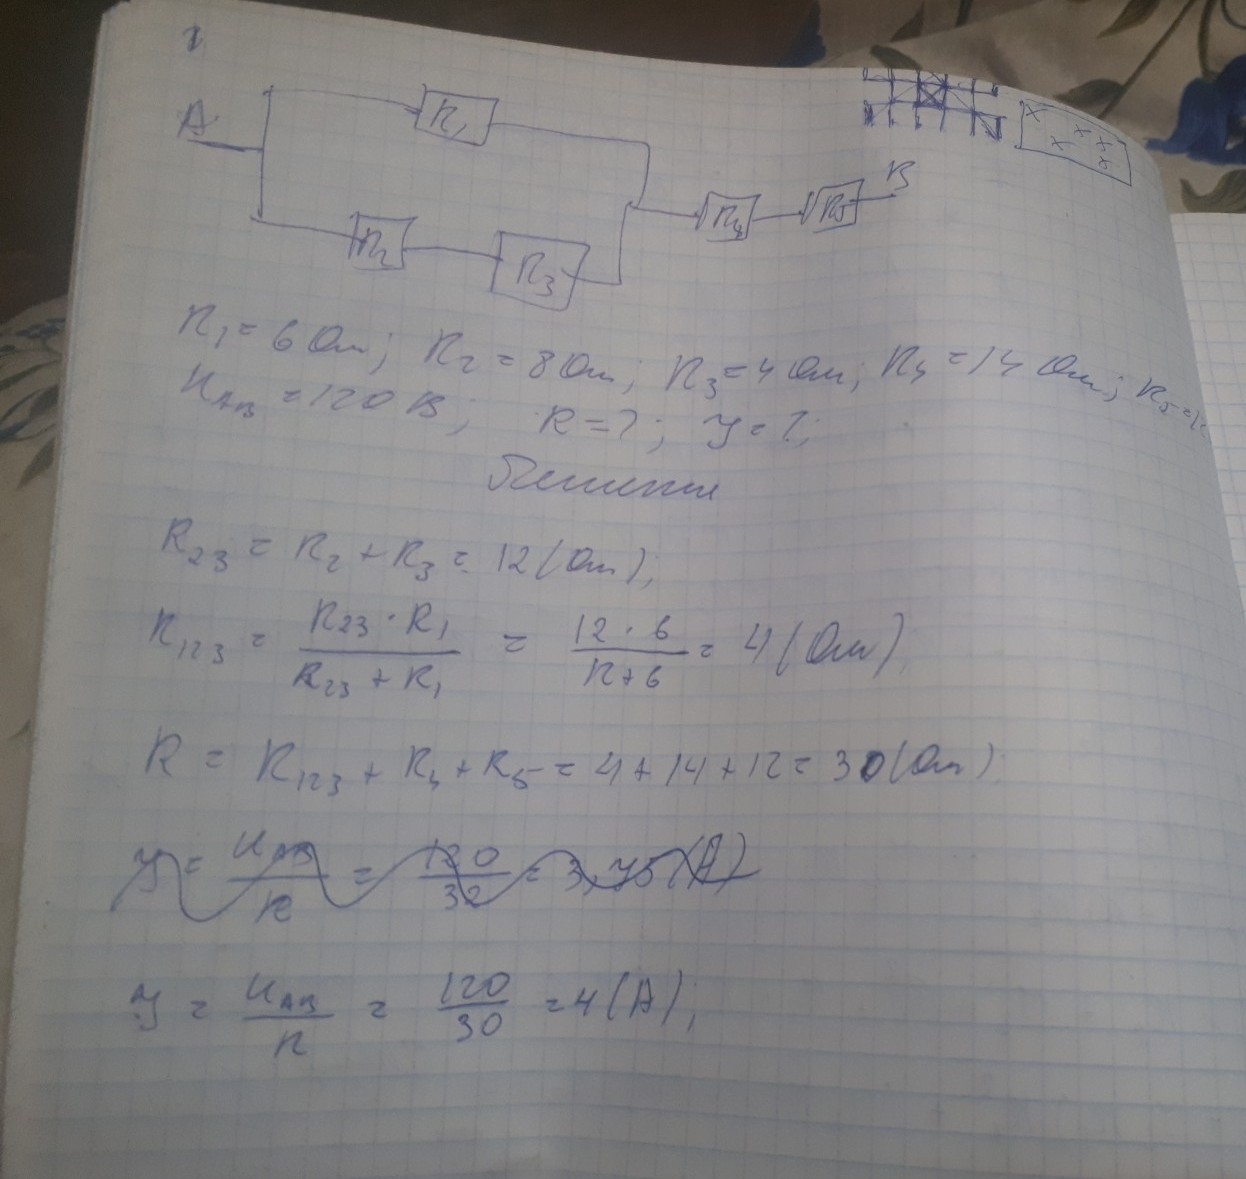 1
A
R₁
B
R₄
R₅
R₂
R₃
R₁ = 6 Ом; R₂ = 8 Ом; R₃ = 4 Ом; R₄ = 14 Ом; R₅ =
U_AB = 120 В; R = ?; У = ?;
Решение
R₂₃ = R₂ + R₃ = 12 (Ом);
R₁₂₃ = R₂₃ · R₁ / R₂₃ + R₁ = 12 · 6 / 12 + 6 = 4 (Ом);
R = R₁₂₃ + R₄ + R₅ = 4 + 14 + 12 = 30 (Ом)
У = U_AB / R = 120 / 32 = 3,75 (А)
У = U_AB / R = 120 / 30 = 4 (А);